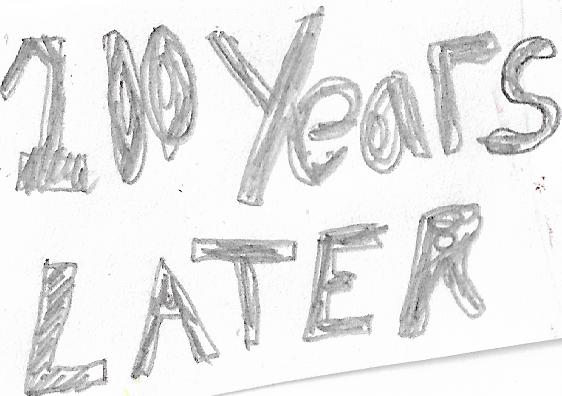 100 Years
LATER